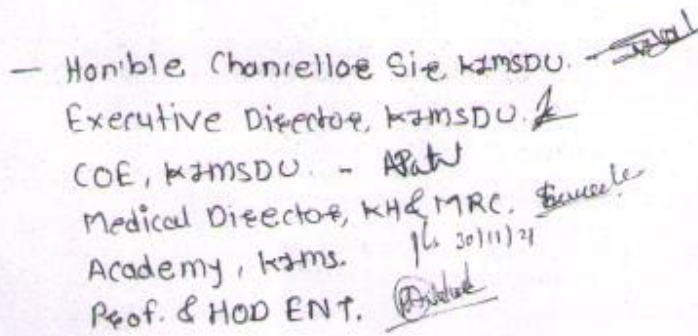 - Hon'ble Chancelloe Sir, KIMSDU. -
Executive Director, KIMSDU.
COE, KIMSDU. - APatil
Medical Director, KH & MRC.
Academy, KIMS. 30/11/21
Prof. & HOD ENT.